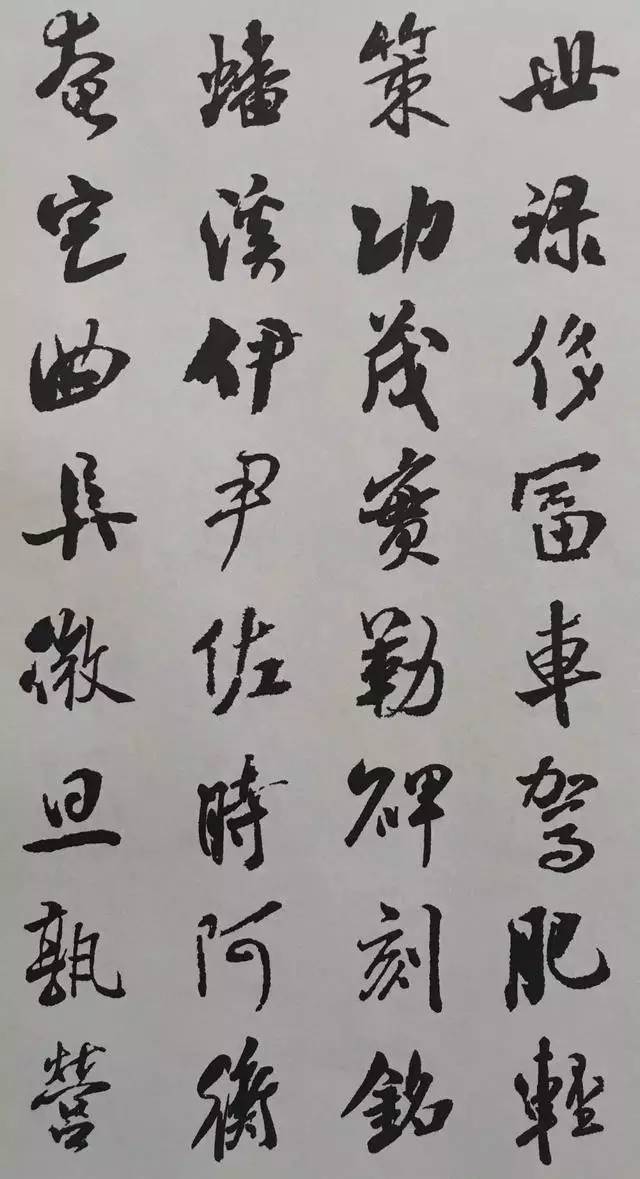 世禄侈冨車駕肥輕
策功茂實勒碑刻銘
磻溪伊尹佐時阿衡
奄宅曲阜微旦孰營